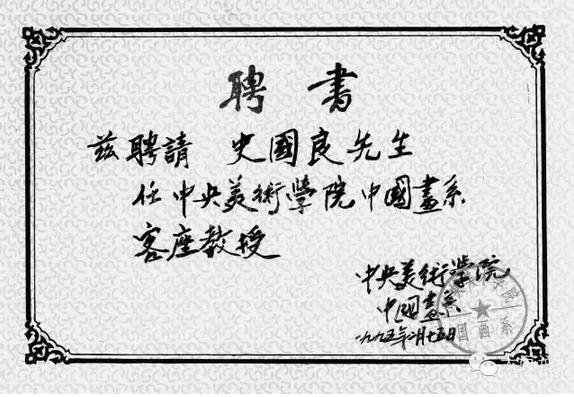 聘書
兹聘請 史國良先生
任中央美術學院中國畫系
客座教授
中央美術學院
中國畫系
一九九五年二月十五日
国画系